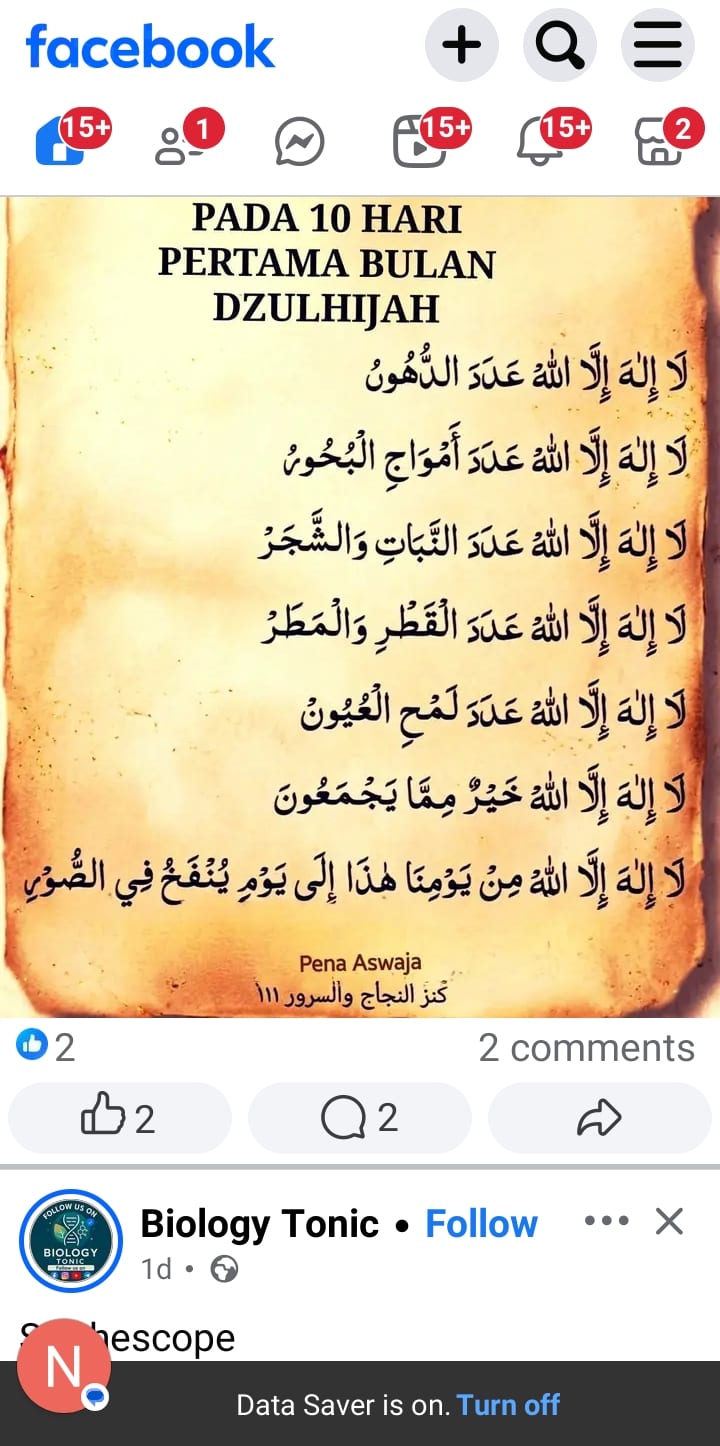 facebook
15+
1
15+
15+
2
PADA 10 HARI
PERTAMA BULAN
DZULHIJAH
لَا إِلٰهَ إِلَّا اللهُ عَدَدَ الدُّهُورْ
لَا إِلٰهَ إِلَّا اللهُ عَدَدَ أَمْوَاجِ الْبُحُورْ
لَا إِلٰهَ إِلَّا اللهُ عَدَدَ النَّبَاتِ وَالشَّجَرْ
لَا إِلٰهَ إِلَّا اللهُ عَدَدَ الْقَطْرِ وَالْمَطَرْ
لَا إِلٰهَ إِلَّا اللهُ عَدَدَ لَمْحِ الْعُيُونْ
لَا إِلٰهَ إِلَّا اللهُ خَيْرٌ مِمَّا يَجْمَعُونَ
لَا إِلٰهَ إِلَّا اللهُ مِنْ يَوْمِنَا هٰذَا إِلَى يَوْمِ يُنْفَخُ فِي الصُّوْرِ
Pena Aswaja
كنز النجاح والسرور ١١١
2
2 comments
2
2
FOLLOW US ON
BIOLOGY
TONIC
Biology Tonic • Follow
1d •
hescope
N
Data Saver is on. Turn off